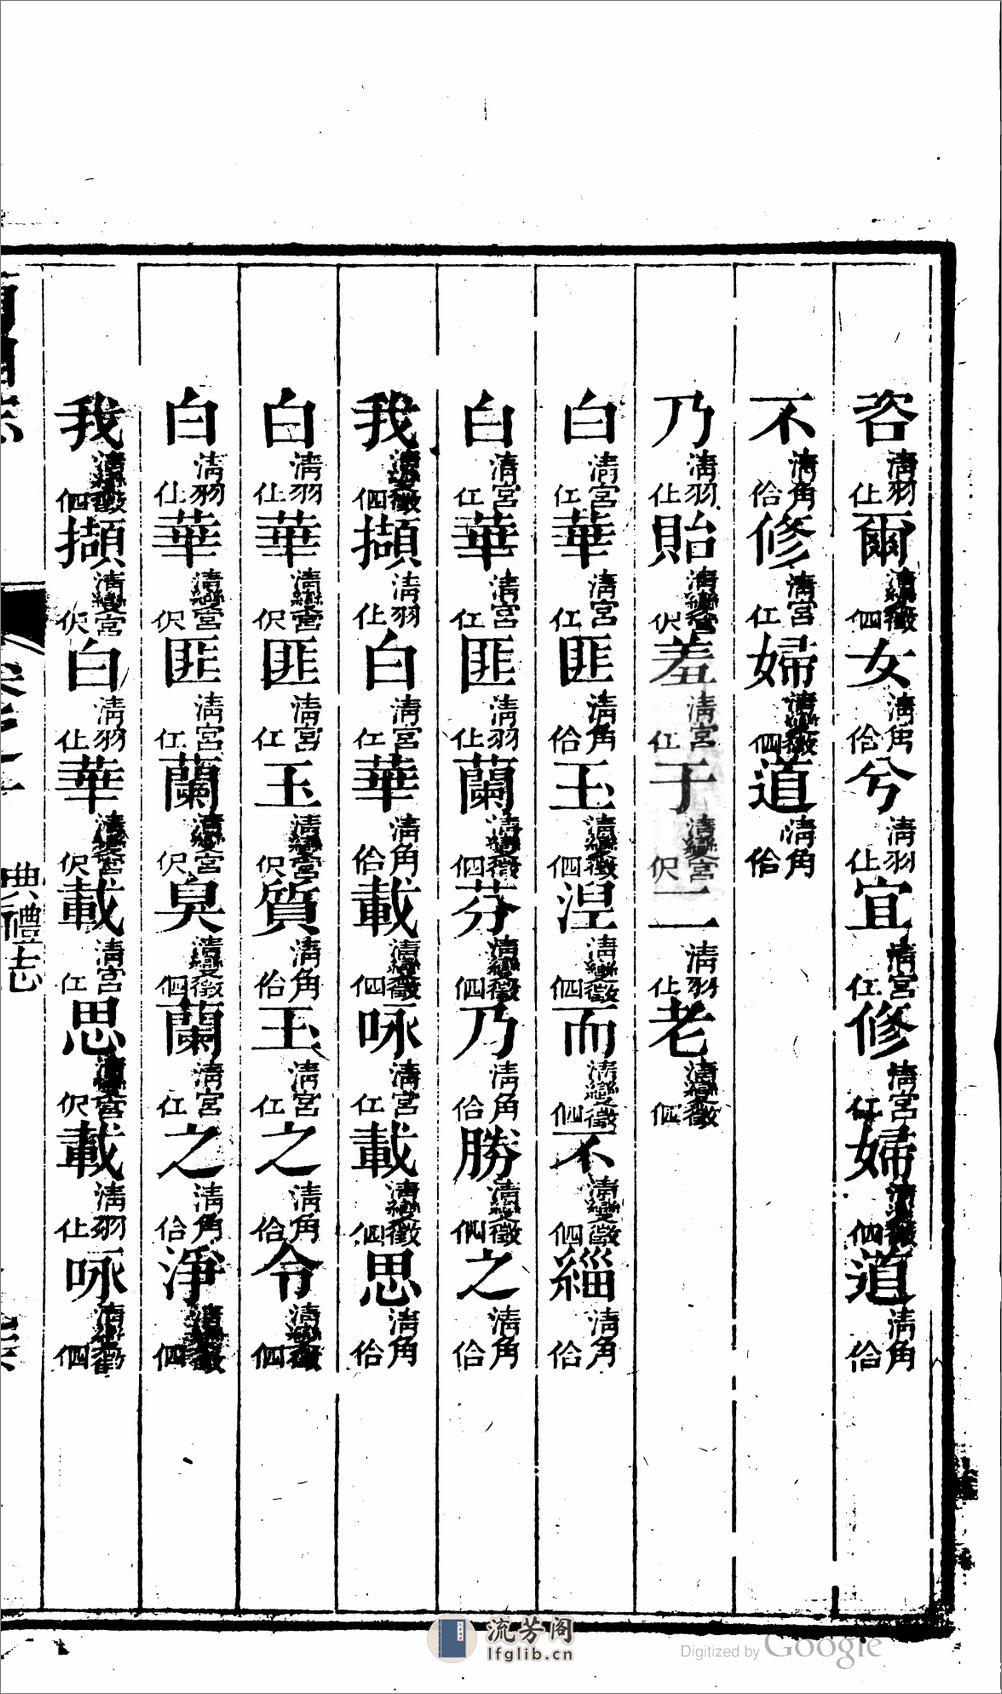 咨清羽仩爾清變徵伵女清角佮兮清羽仩宜清宮仜修清宮仜婦清變徵伵道清角佮
不清角佮修清宮仜婦清變徵伵道清角佮
乃清羽仩貽清變宮伬羞清宮仜于清變宮伬二清羽仩老清變徵伵
白清宮仜華清宮仜匪清角佮玉清變徵伵涅清變徵伵而清變徵伵不清變徵伵緇清角佮
白清宮仜華清宮仜匪清羽仩蘭清變徵伵芬清變徵伵乃清角佮勝清變徵伵之清角佮
我清變徵伵擷清羽仩白清宮仜華清角佮載清變徵伵咏清宮仜載清變徵伵思清角佮
白清羽仩華清變宮伬匪清宮仜玉清變宮伬質清角佮玉清宮仜之清角佮令清變徵伵
白清羽仩華清變宮伬匪清宮仜蘭清變宮伬臭清變徵伵蘭清宮仜之清角佮淨清變徵伵
我清變徵伵擷清變宮伬白清羽仩華清變宮伬載清宮仜思清變宮伬載清羽仩咏清變徵伵
典禮志
流芳阁
lfglib.cn
Digitized by Google